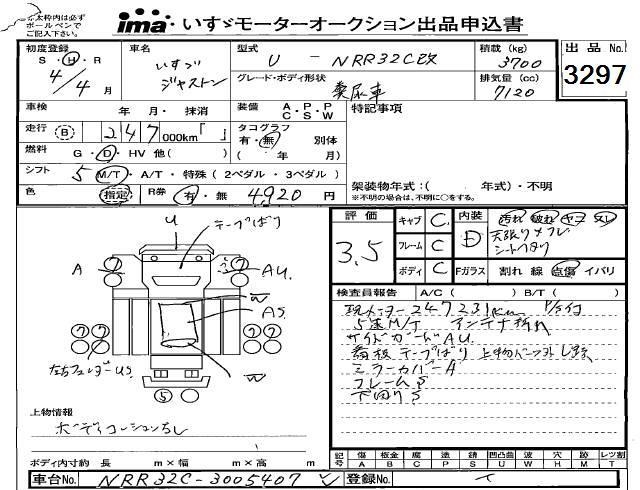 太枠内は必ず
ボールペンで
ご記入下さい。
ima いすゞモーターオークション出品申込書
初度登録 車名 型式 積載 (kg) 出品 No.
S・H・R いすゞ U - NRR32C改 3700 3297
4/4月 ジャストン グレード・ボディ形状 排気量 (cc)
糞尿車 7120
車検 年 月・ 抹消 装備 A・P・P 特記事項
C S W
走行 B 247 000km「 」 タコグラフ
有・無 別体
燃料 G・D・HV 他( ) ( 年 月)
シフト 5 M/T・A/T・特殊 ( 2ペダル・3ペダル )
架装物年式:( 年式)・不明
色 指定 R券 有・無 4,920 円
※不明の場合は、不明に○をする。
評価 キャブ C 内装 汚れ 破れ ヤコ スレ
3.5 フレーム C D
ボディ C Fガラス 割れ 線 点傷 イバリ
U テープばり
A AU
W
AS
W
検査員報告 A/C ( ) B/T ( )
現メーター247231km
5速M/T アンテナ折れ
サイドガードAU.
看板テープばり
ミラーカバーA
フレームS
下回りS
5
上物情報
ボディ内寸約 長 m×幅 m×高 m
記号 傷 A 板金 B 腐 C 塗 P 錆 S 凹凸凹 U 波 W 穴 H 跡 M レツ割 T
車台No. NRR32C-3005407 登録No.